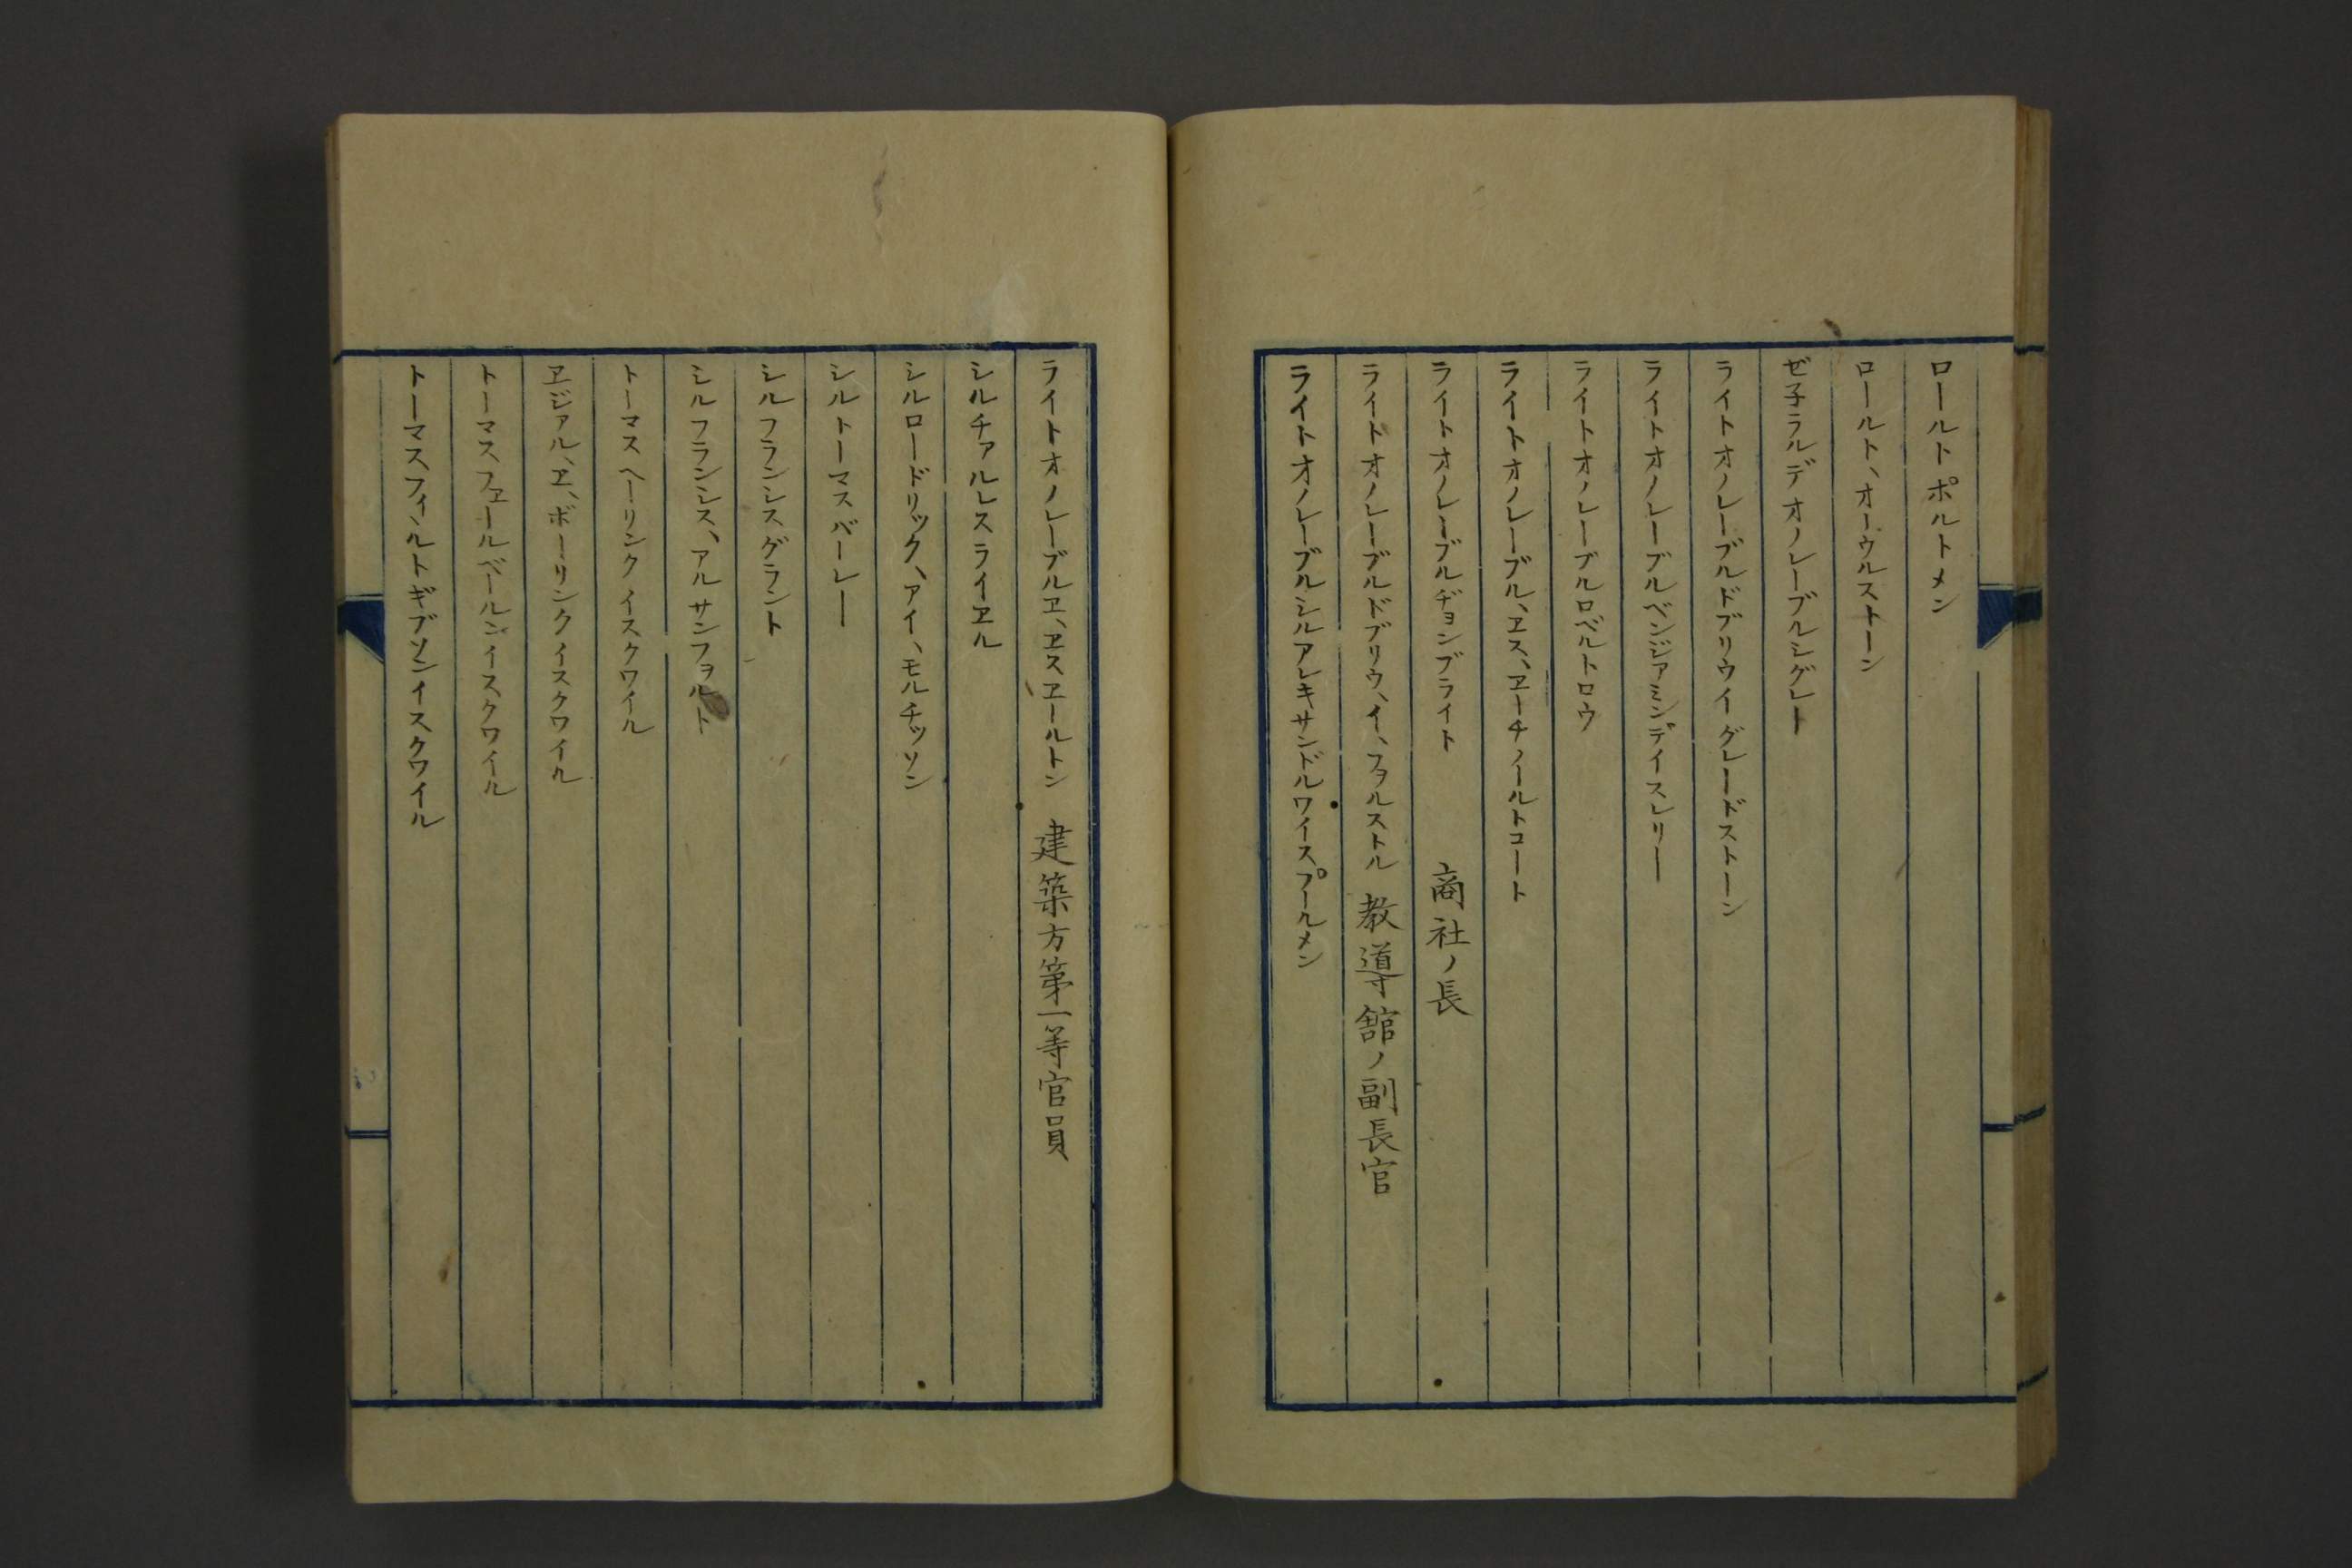 ロールトポルトメン
ロールト、オーウルストーン
ゼ子ラルデオノレーブルシグレト
ライトオノレーブルドブリウイグレードストーン
ライトオノレーブルベンジアミンデイスレリー
ライトオノレーブルロベルトロウ
ライトオノレーブル、ヱス、ヱーチノールトコート
ライトオノレーブルヂョンブライト 商社ノ長
ライトオノレーブルドブリウ、イ、フヲルストル 教導舘ノ副長官
ライトオノレーブルシルアレキサンドルワイスプールメン
ライトオノレーブルヱ、ヱスヱールトン 建築方第一等官員
シルチアルレスライヱル
シルロードリック、アイ、モルチッソン
シルトーマスバーレー
シルフランシスグラント
シルフランシス、アルサンフヲルト
トーマスヘーリンクイスクワイル
ヱジアル、ヱ、ボーリンクイスクワイル
トーマスフヱールベールンイスクワイル
トーマスフィールトギブソンイスクワイル